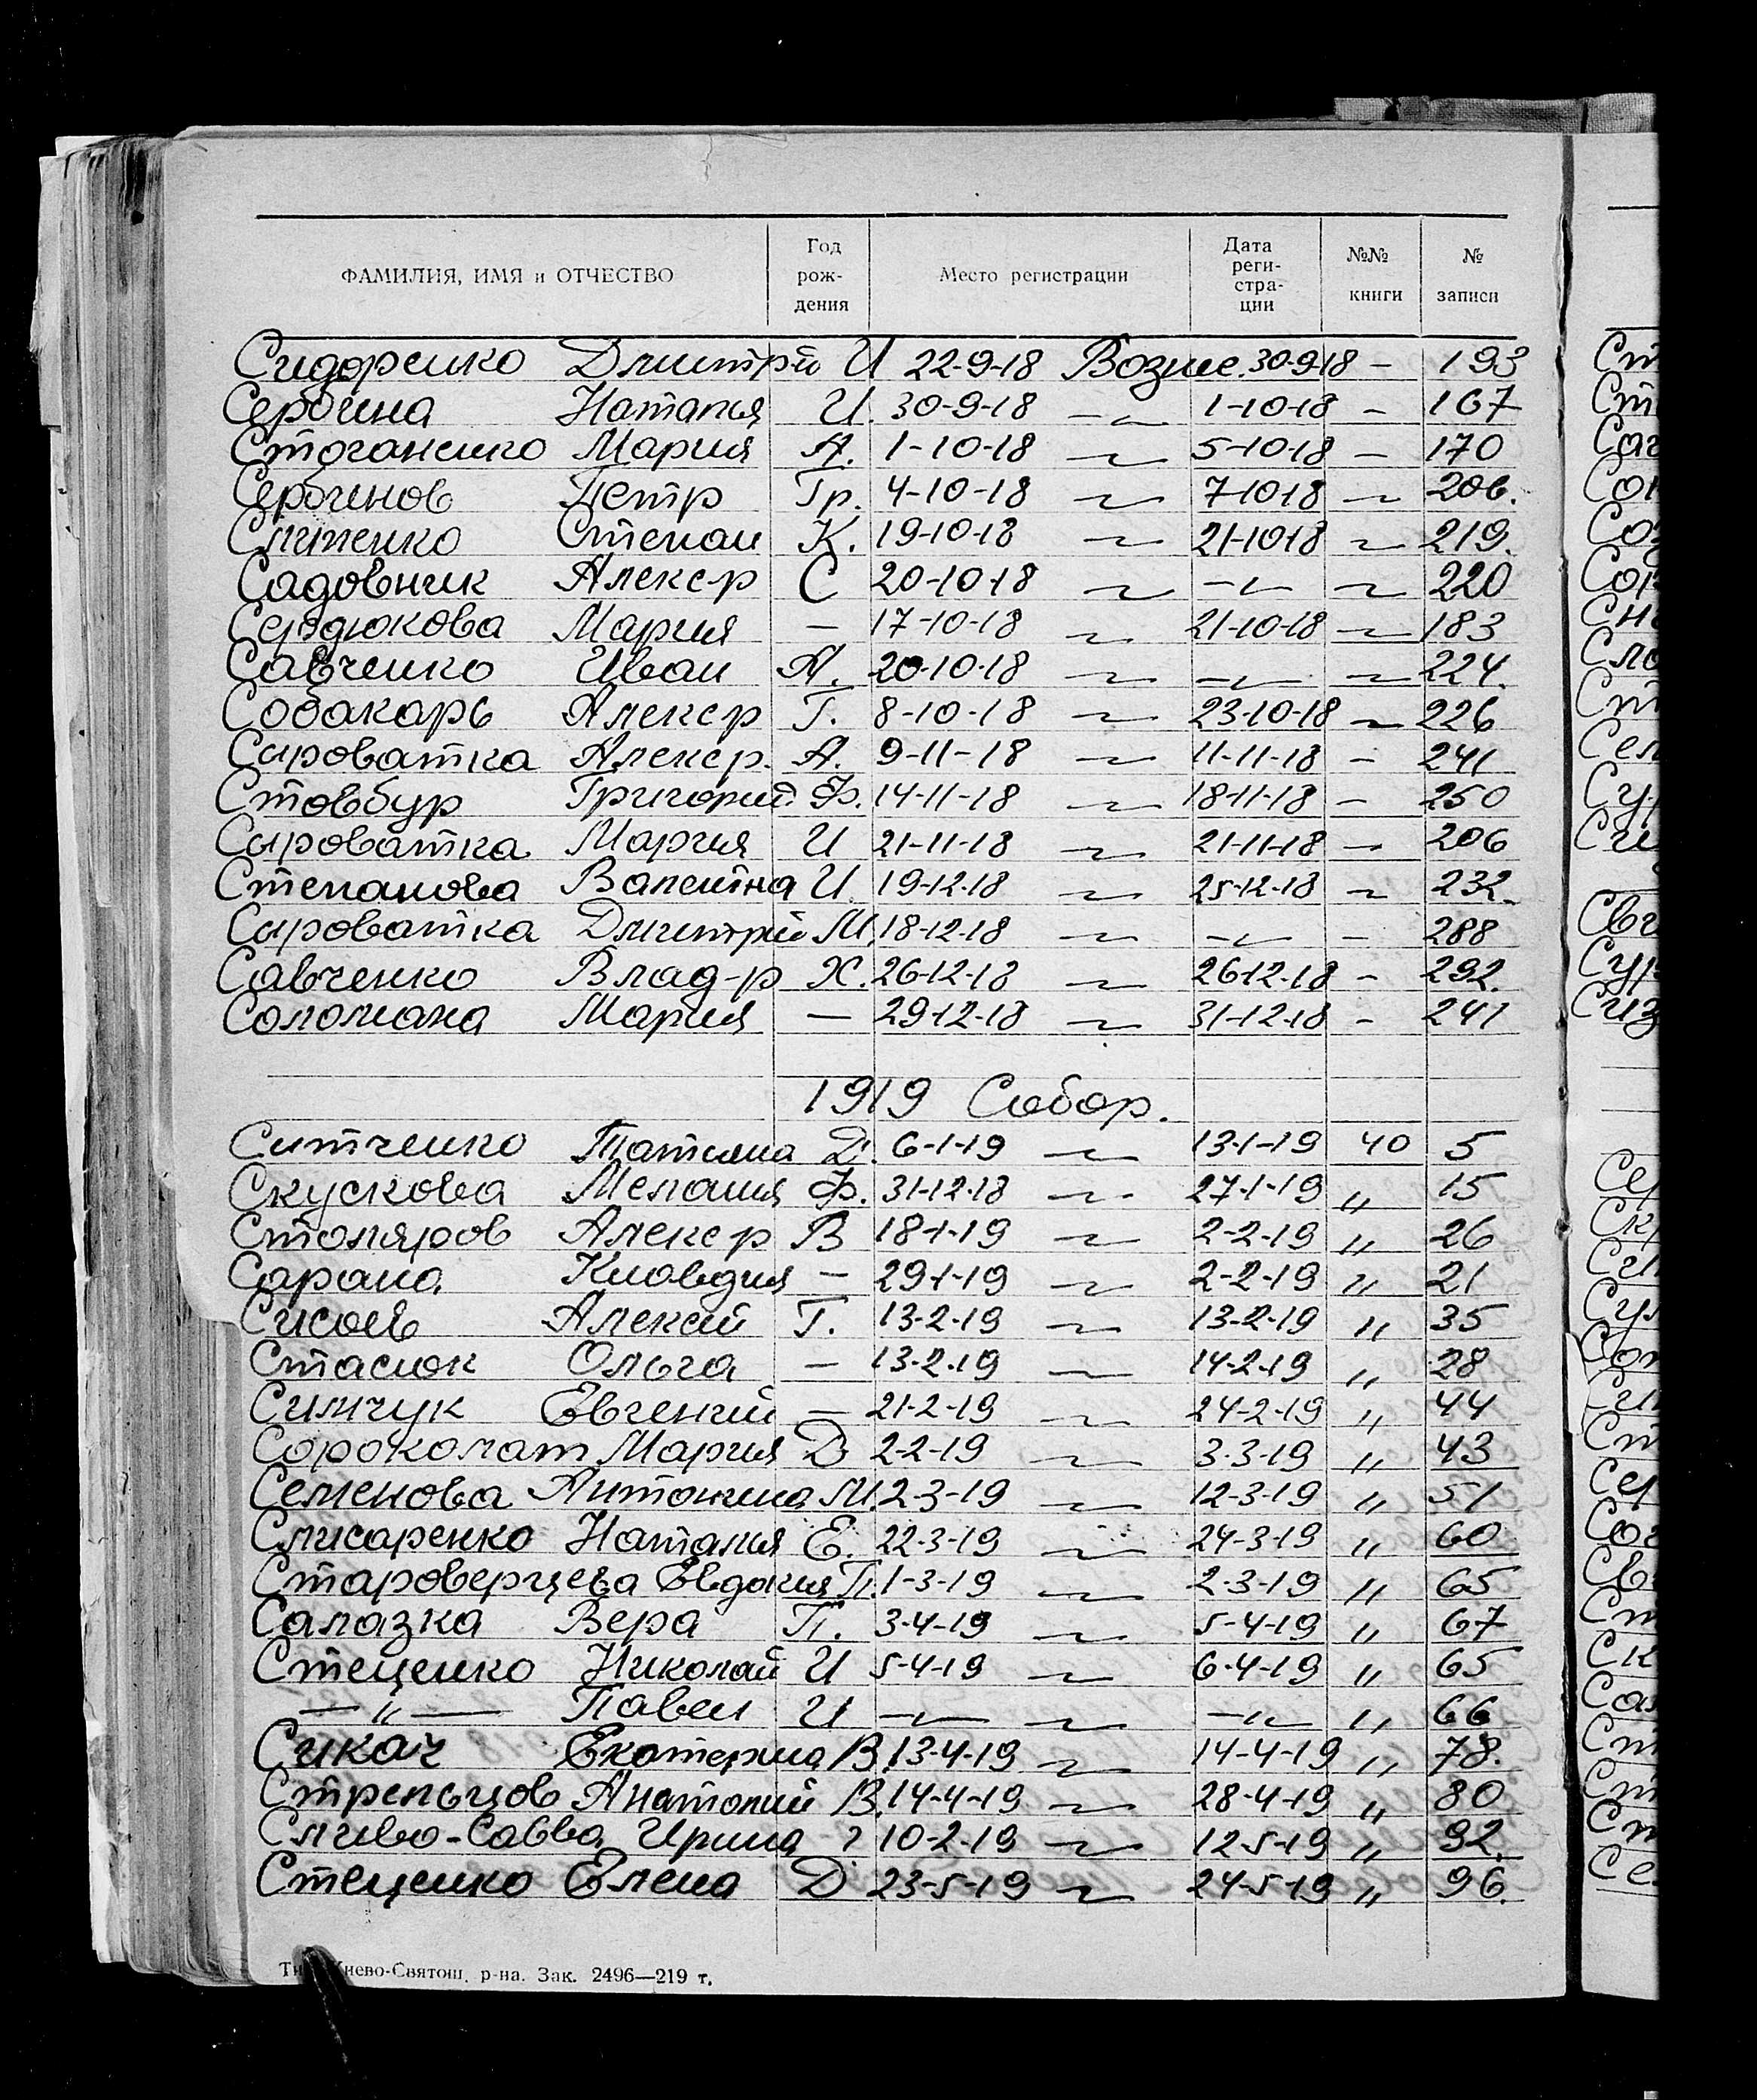 ФАМИЛИЯ, ИМЯ и ОТЧЕСТВО Год рождения Место регистрации Дата регистрации №№ книги № записи
Сидоренко Дмитрий И 22-9-18 Возне. 30-9-18 – 193
Сербина Наталья И. 30-9-18 –〃– 1-10-18 – 167
Стоганенко Мария А. 1-10-18 –〃– 5-10-18 – 170
Сербинов Петр Гр. 4-10-18 –〃– 7-10-18 –〃– 206.
Слипенко Степан К. 19-10-18 –〃– 21-10-18 –〃– 219.
Садовник Алекс-р С 20-10-18 –〃– –〃– –〃– 220
Сердюкова Мария – 17-10-18 –〃– 21-10-18 –〃– 183
Савченко Иван А. 20-10-18 –〃– –〃– –〃– 224.
Собакарь Алекс-р Г. 8-10-18 –〃– 23-10-18 –〃– 226
Сыроватка Алекс-р. А. 9-11-18 –〃– 11-11-18 – 241
Стовбур Григорий Ф. 14-11-18 –〃– 18-11-18 – 250
Сыроватка Мария И 21-11-18 –〃– 21-11-18 – 206
Степанова Валентина И. 19-12-18 –〃– 25-12-18 –〃– 232.
Сыроватка Дмитрий М. 18-12-18 –〃– –〃– – 288
Савченко Влад-р Х. 26-12-18 –〃– 26-12-18 – 292.
Соломаха Мария – 29-12-18 –〃– 31-12-18 – 241
1919 Собор.
Ситченко Татьяна Д. 6-1-19 –〃– 13-1-19 40 5
Скускова Мелания Ф. 31-12-18 –〃– 27-1-19 〃 15
Столяров Алекс-р В 18-1-19 –〃– 2-2-19 〃 26
Сарана Клавдия – 29-1-19 –〃– 2-2-19 〃 21
Сисоев Алексей Г. 13-2-19 –〃– 13-2-19 〃 35
Стасюк Ольга – 13-2-19 –〃– 14-2-19 〃 28
Симчук Евгений – 21-2-19 –〃– 24-2-19 〃 44
Сорокопат Мария Д 2-2-19 –〃– 3-3-19 〃 43
Семенова Антонина М. 2-3-19 –〃– 12-3-19 〃 51
Слисаренко Наталья Е. 22-3-19 –〃– 24-3-19 〃 60
Староверцева Евдокия П. 1-3-19 –〃– 2-3-19 〃 65
Салазка Вера П. 3-4-19 –〃– 5-4-19 〃 67
Стеценко Николай И 5-4-19 –〃– 6-4-19 〃 65
–〃– Павел И –〃– –〃– –〃– 〃 66
Сикач Екатерина В. 13-4-19 –〃– 14-4-19 〃 78.
Стрельцов Анатолий В. 14-4-19 –〃– 28-4-19 〃 80
Сливо-Савва Ирина ? 10-2-19 –〃– 12-5-19 〃 92.
Стеценко Елена Д 23-5-19 –〃– 24-5-19 〃 96.
Киево-Святош. р-на. Зак. 2496—219 т.